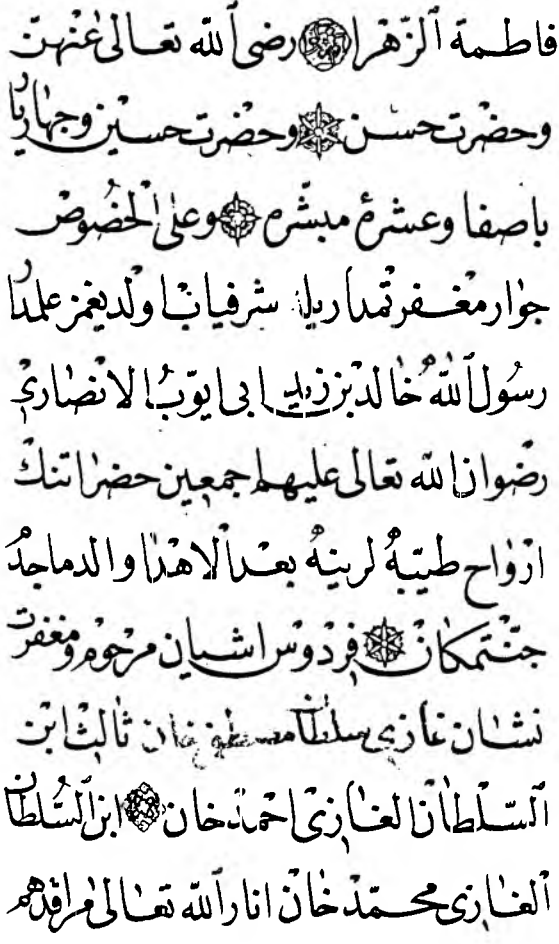 فاطمة ٱلزهرا رضى ٱلله تعالى عنهن
وحضرت حسن وحضرت حسين وجهاريار
باصفا وعشرهٔ مبشره وعلى الخصوص
جوار مغفرتمداريله شرفياب اولديغمز علمدار
رسول ٱلله خالد بن زيد ابى ايوب الانصارى
رضوان الله تعالى عليهم اجمعين حضراتنك
ارواح طيبه لرينه بعد الاهدا والد ماجد
جنتمكان فردوس اشيان مرحوم ومغفرت
نشان غازى سلطان مصطفى خان ثالث ابن
ٱلسلطان الغازى احمد خان ابن ٱلسلطان
ٱلغازى محمد خان انار ٱلله تعالى مراقدهم